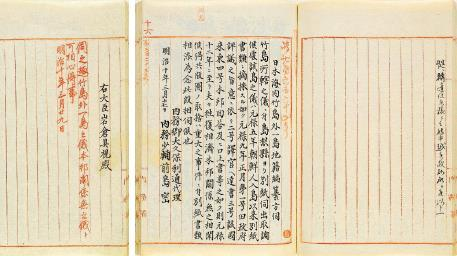 日本海内竹島外一島地籍編纂方伺
竹島所轄之儀ニ付島根縣ヨリ別紙伺出取調
候處該島之儀ハ元禄五年朝鮮人入島以来別紙
書類ニ摘採スル如ク元禄九年正月第一号旧政府
評議之旨意ニ依リ二号譯官ヘ達書三号該國
来柬四号本邦回答及ヒ口上書等之如ク則元禄
十二年ニ至リ夫々往復相済本邦関係無之相聞
候得共版圖ノ取捨ハ重大之事件ニ付別紙書類
相添為念此段相伺候也
内務卿大久保利通代理
明治十年三月十七日 内務少輔前島密
右大臣岩倉具視殿
伺之趣竹島外一島之儀本邦関係無之儀ト
可相心得事
明治十年三月廿九日